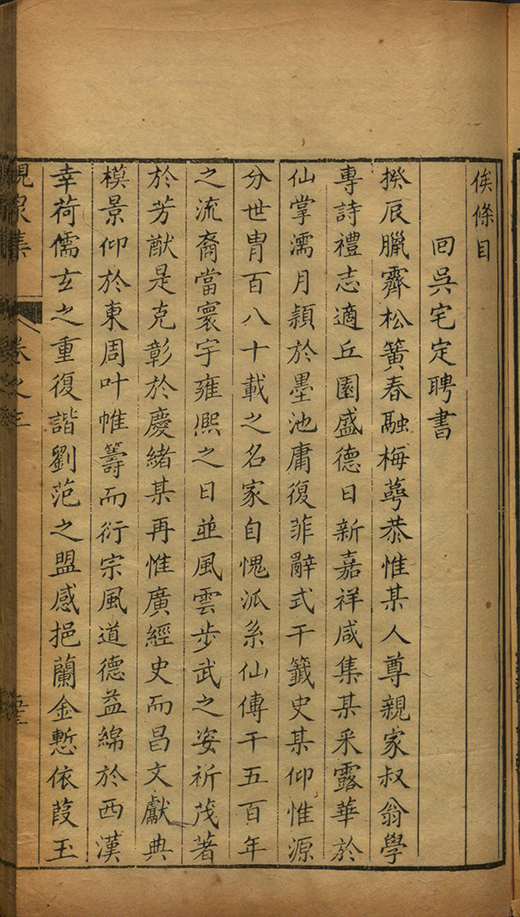 俟條目
回吳宅定聘書
揆辰臘霽松簧春融梅萼恭惟某人尊親家叔翁學
專詩禮志適丘園盛德日新嘉祥咸集某采露華於
仙掌濡月穎於墨池庸復菲辭式干籤史某仰惟源
分世冑百八十載之名家自愧派系仙傳千五百年
之流裔當寰宇雍熙之日並風雲步武之姿祈茂著
於芳猷是克彰於慶緒某再惟廣經史而昌文獻典
模景仰於東周叶帷籌而衍宗風道德益綿於西漢
幸荷儒玄之重復諧劉范之盟感挹蘭金慙依葭玉
峴泉集
卷之三